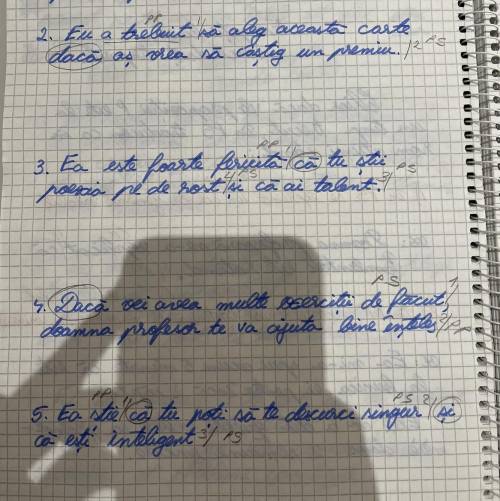 PP 1/
2. Eu a trebuit să aleg această carte
dacă aș vrea să câștig un premiu. /2 PS
PP 1/ PS
3. Ea este foarte fericită că tu știi
poezia pe de rost și că ai talent. 3/
PS 1
4. Dacă vei avea multe exerciții de făcut,
doamna profesor te va ajuta bine ințeles.
PP 1/ PS 2/
5. Ea știe că tu poți să te descurci singur și
că ești inteligent 3/ PS